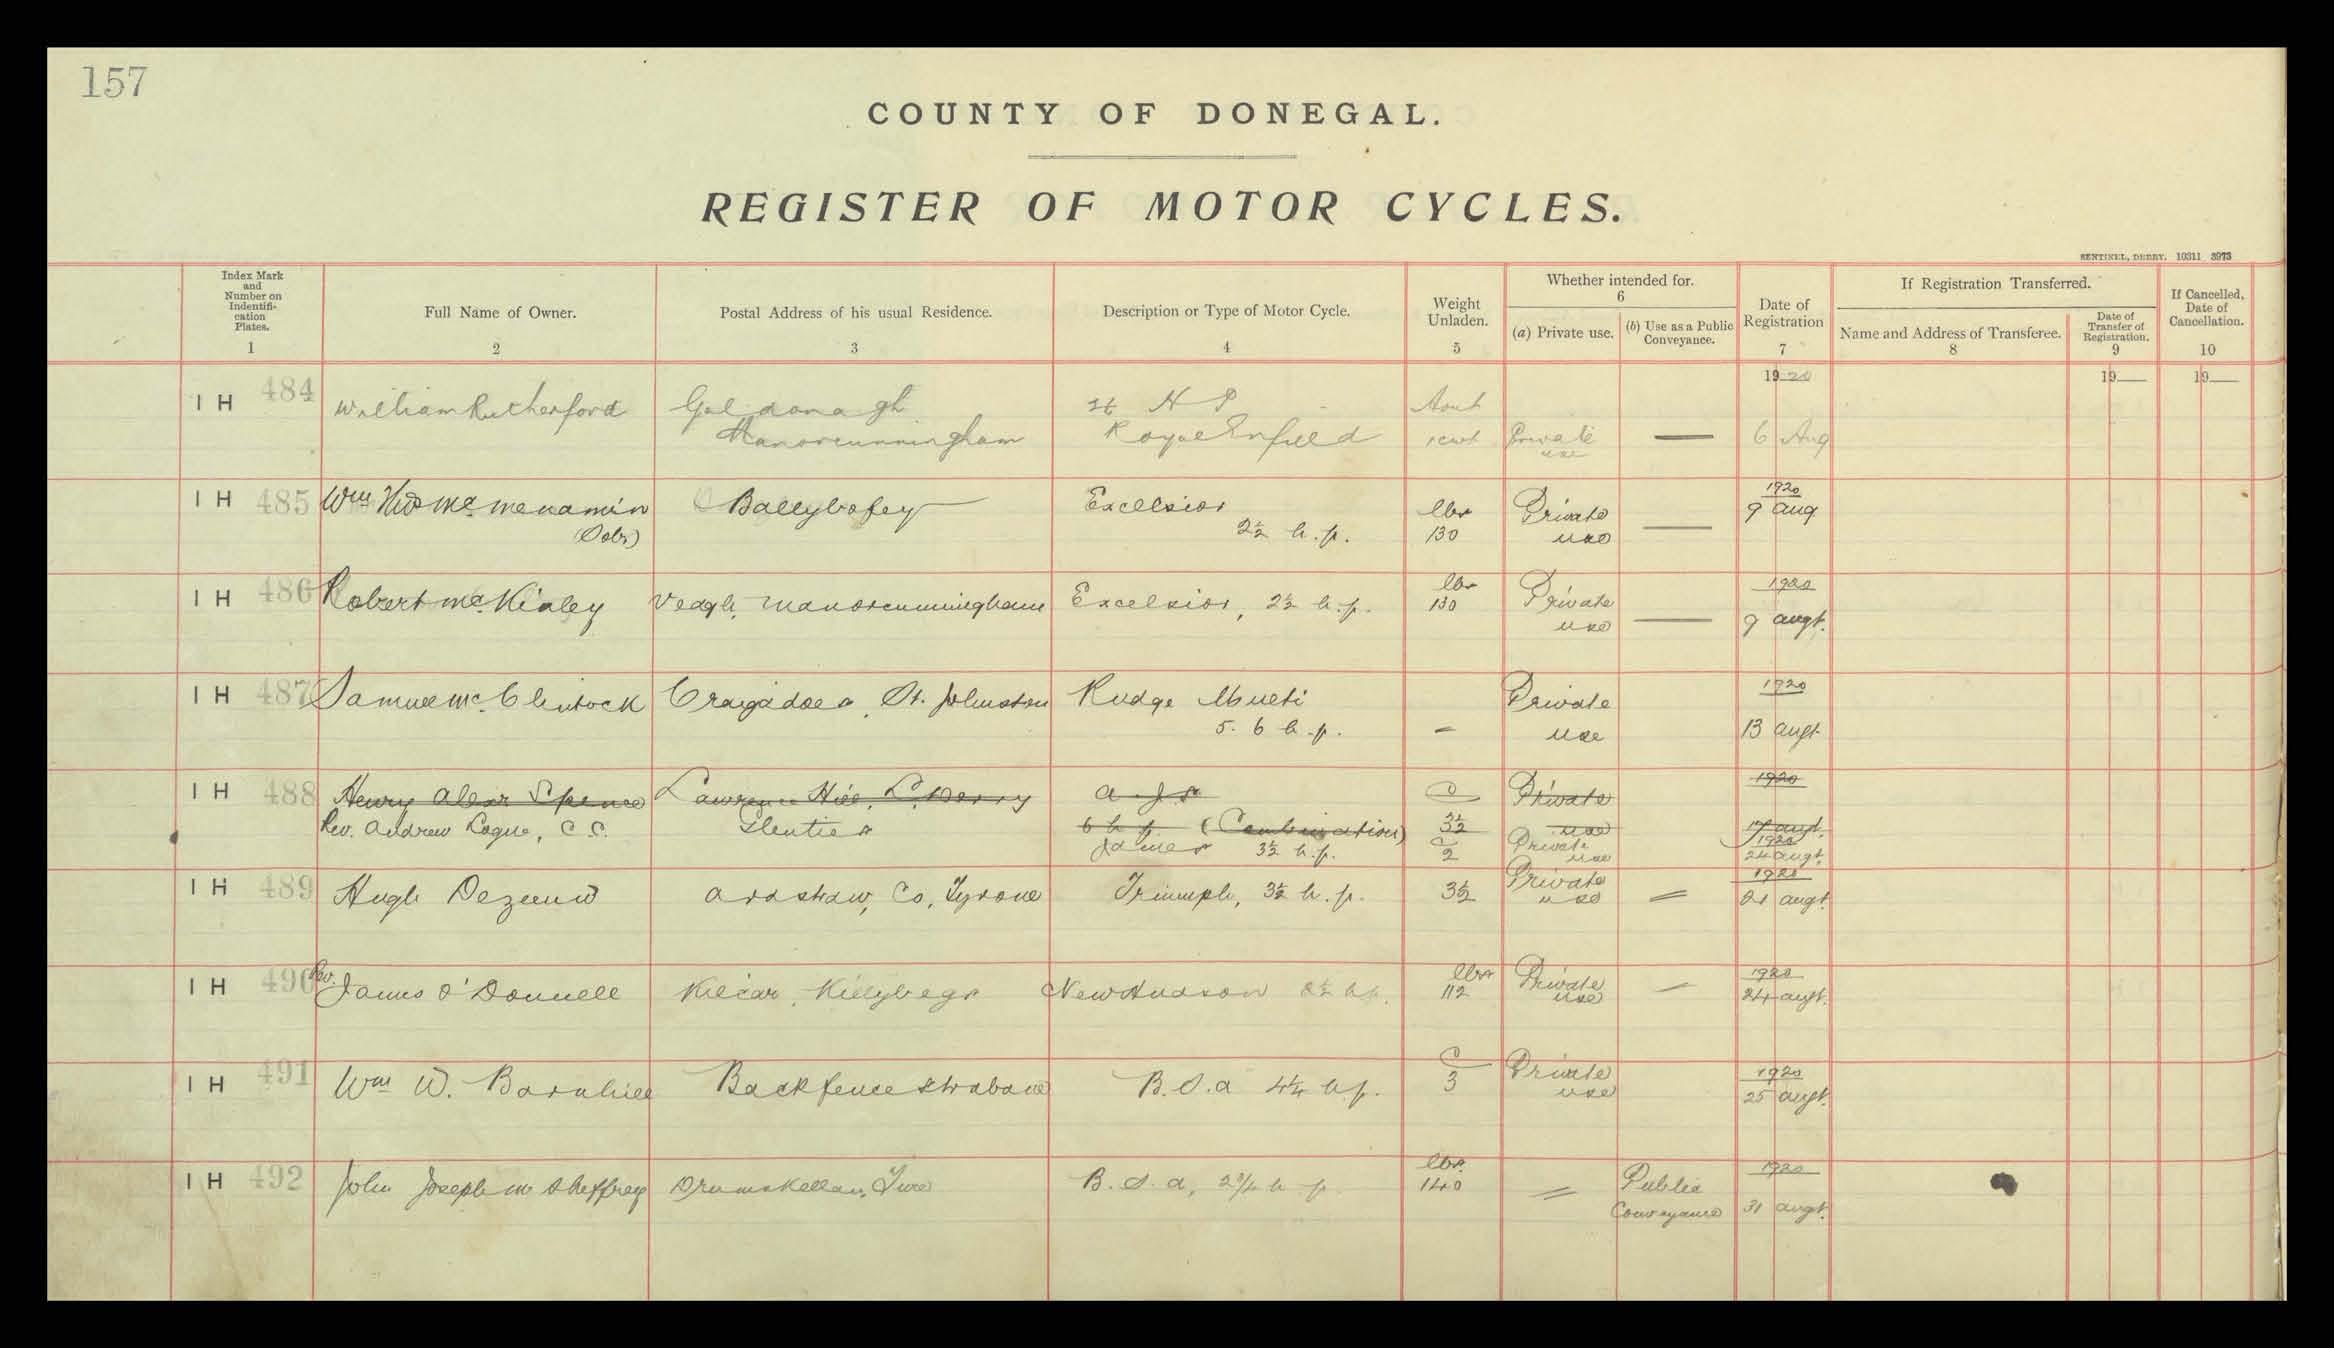 157
COUNTY OF DONEGAL.
REGISTER OF MOTOR CYCLES.
SENTINEL, DERRY. 10311 3973
Index Mark and Number on Indentifi-cation Plates. 1
Full Name of Owner. 2
Postal Address of his usual Residence. 3
Description or Type of Motor Cycle. 4
Weight Unladen. 5
Whether intended for. 6
(a) Private use.
(b) Use as a Public Conveyance.
Date of Registration 7
If Registration Transferred.
Name and Address of Transferee. 8
Date of Transfer of Registration. 9
If Cancelled, Date of Cancellation. 10
1920 19 19
IH 484 William Rutherford Galdonagh H P
Manorcunningham Royal Enfield 1cwt Private use — 6 Aug
IH 485 Wm Thos McMenamin Ballybofey Excelsior lbs Private 1920 9 Aug
(Solr) 2½ h.p. 130 use —
IH 486 Robert McKinley Veagh, Manorcunningham Excelsior, 2½ h.p. lbs 130 Private use — 1920 9 Augt.
IH 487 Samuel McClintock Craigadoes, St. Johnston Rudge Multi Private 1920
5.6 h.p. – use 13 Augt
IH 488 Henry Alexr Spence Lawrence Hill, L'Derry A.J.S. C Private 1920
6 h.p. (Combination) 3½ use 17 Augt.
Rev. Andrew Logue, C.C. Glenties James 3½ h.p. C 2 Private use 1920 24 Augt.
IH 489 Hugh Dezeeuw Ardstraw, Co, Tyrone Triumph, 3½ h.p. 3½ Private use = 1920 21 Augt.
IH 490 Rev. James O'Donnell Kilcar, Killybegs New Hudson 2½ h.p. lbs 112 Private use – 1920 24 Augt.
IH 491 Wm W. Barnhill Backfence Strabane B.S.A 4¼ h.p. C 3 Private use 1920 25 Augt.
IH 492 John Joseph McSheffrey B.S.A, 2¾ h.p. lbs. 140 = Public Conveyance 1920 31 Augt.